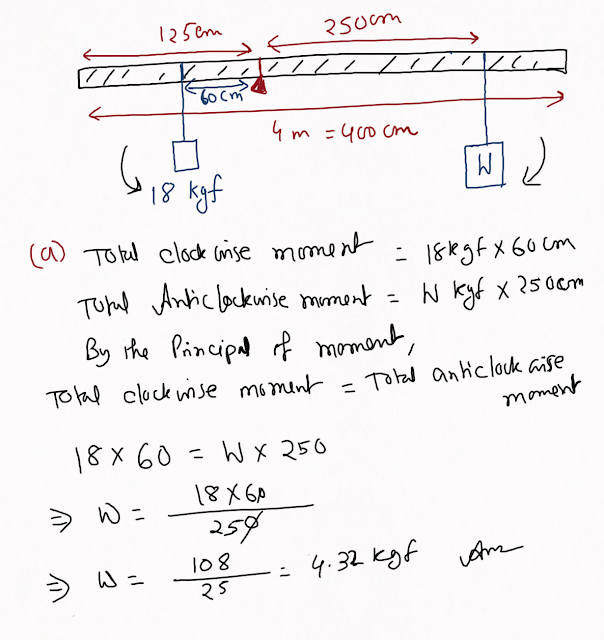 125cm
250cm
60cm
4 m = 400 cm
18 kgf
W
(a) Total clockwise moment = 18kgf × 60 cm
Total Anticlockwise moment = W kgf × 250cm
By the Principal of moment,
Total clockwise moment = Total anticlockwise moment
18 × 60 = W × 250
⇒ W = 18×60 / 250
⇒ W = 108 / 25 = 4.32 kgf Ans